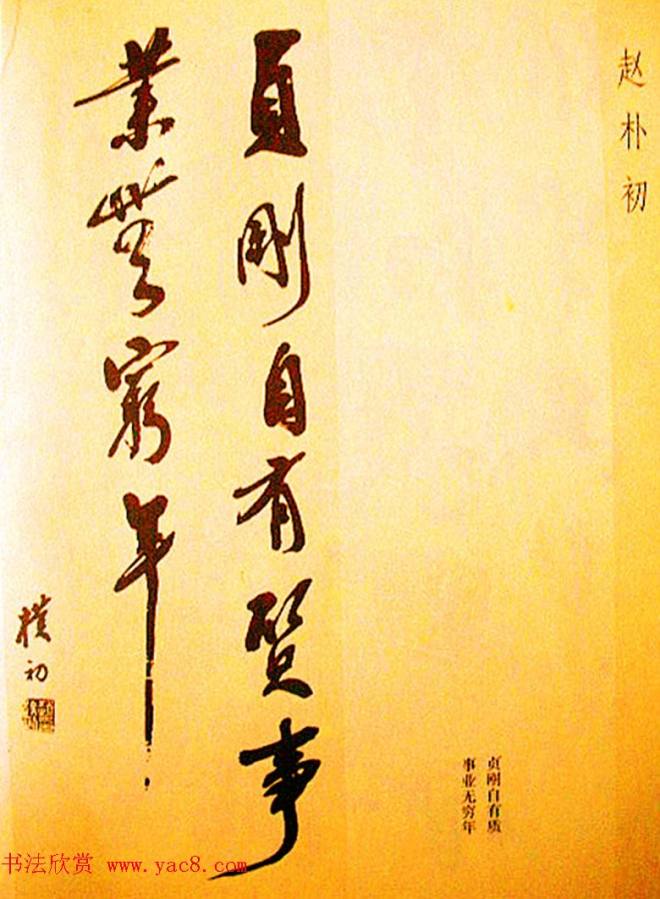 赵朴初
貞剛自有质事
業無窮年
樸初
贞刚自有质
事业无穷年
书法欣赏 www.yac8.com